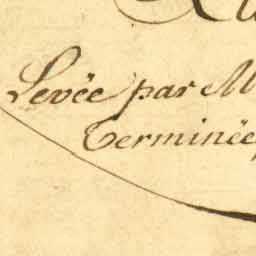 Levée par M
Terminée